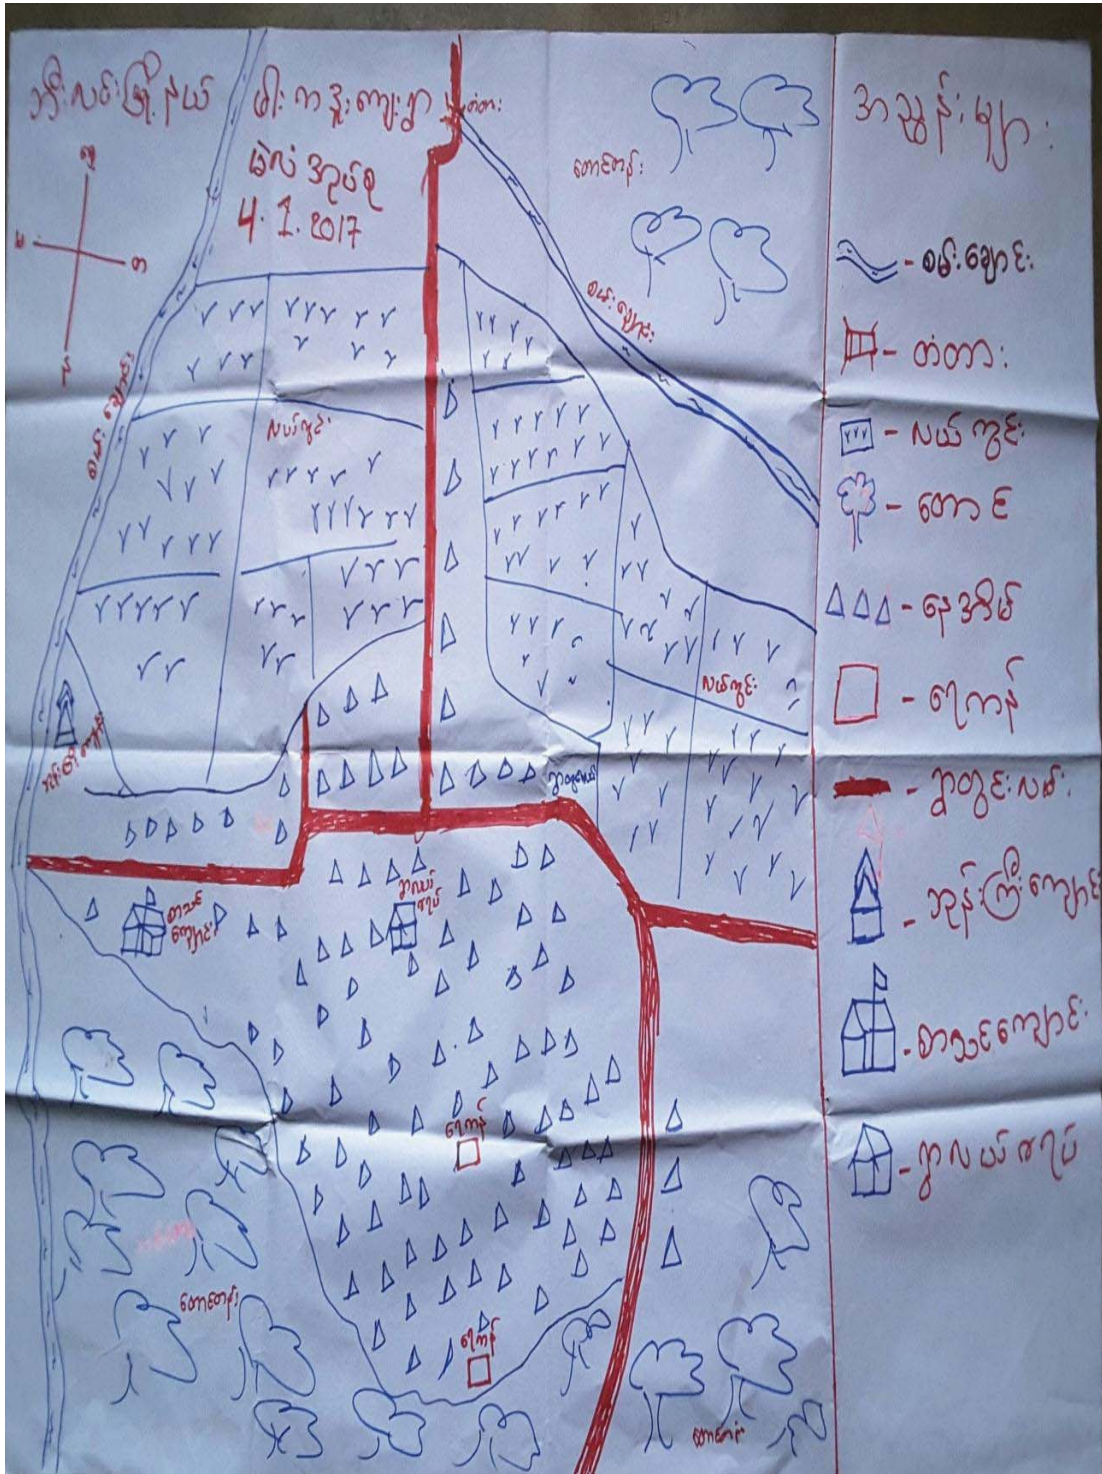 ဘီးလင်းမြို့နယ်
ဖါးကဒူးကျေးရွာ
မဲလံအုပ်စု
4.1.2017
တံတား
တောင်တန်း
စမ်းချောင်း
စမ်းချောင်း
လယ်ကွင်း
လယ်ကွင်း
ဘုန်းကြီးကျောင်း
စာသင်
ကျောင်း
ရွာလယ်
ဇရပ်
ရေကန်
ရေကန်
တောင်တန်း
တောင်တန်း
အညွှန်းများ
- စမ်းချောင်း
- တံတား
- လယ်ကွင်း
- တောင်
- နေအိမ်
- ရေကန်
- ရွာတွင်းလမ်း
- ဘုန်းကြီးကျောင်း
- စာသင်ကျောင်း
- ရွာလယ်ဇရပ်